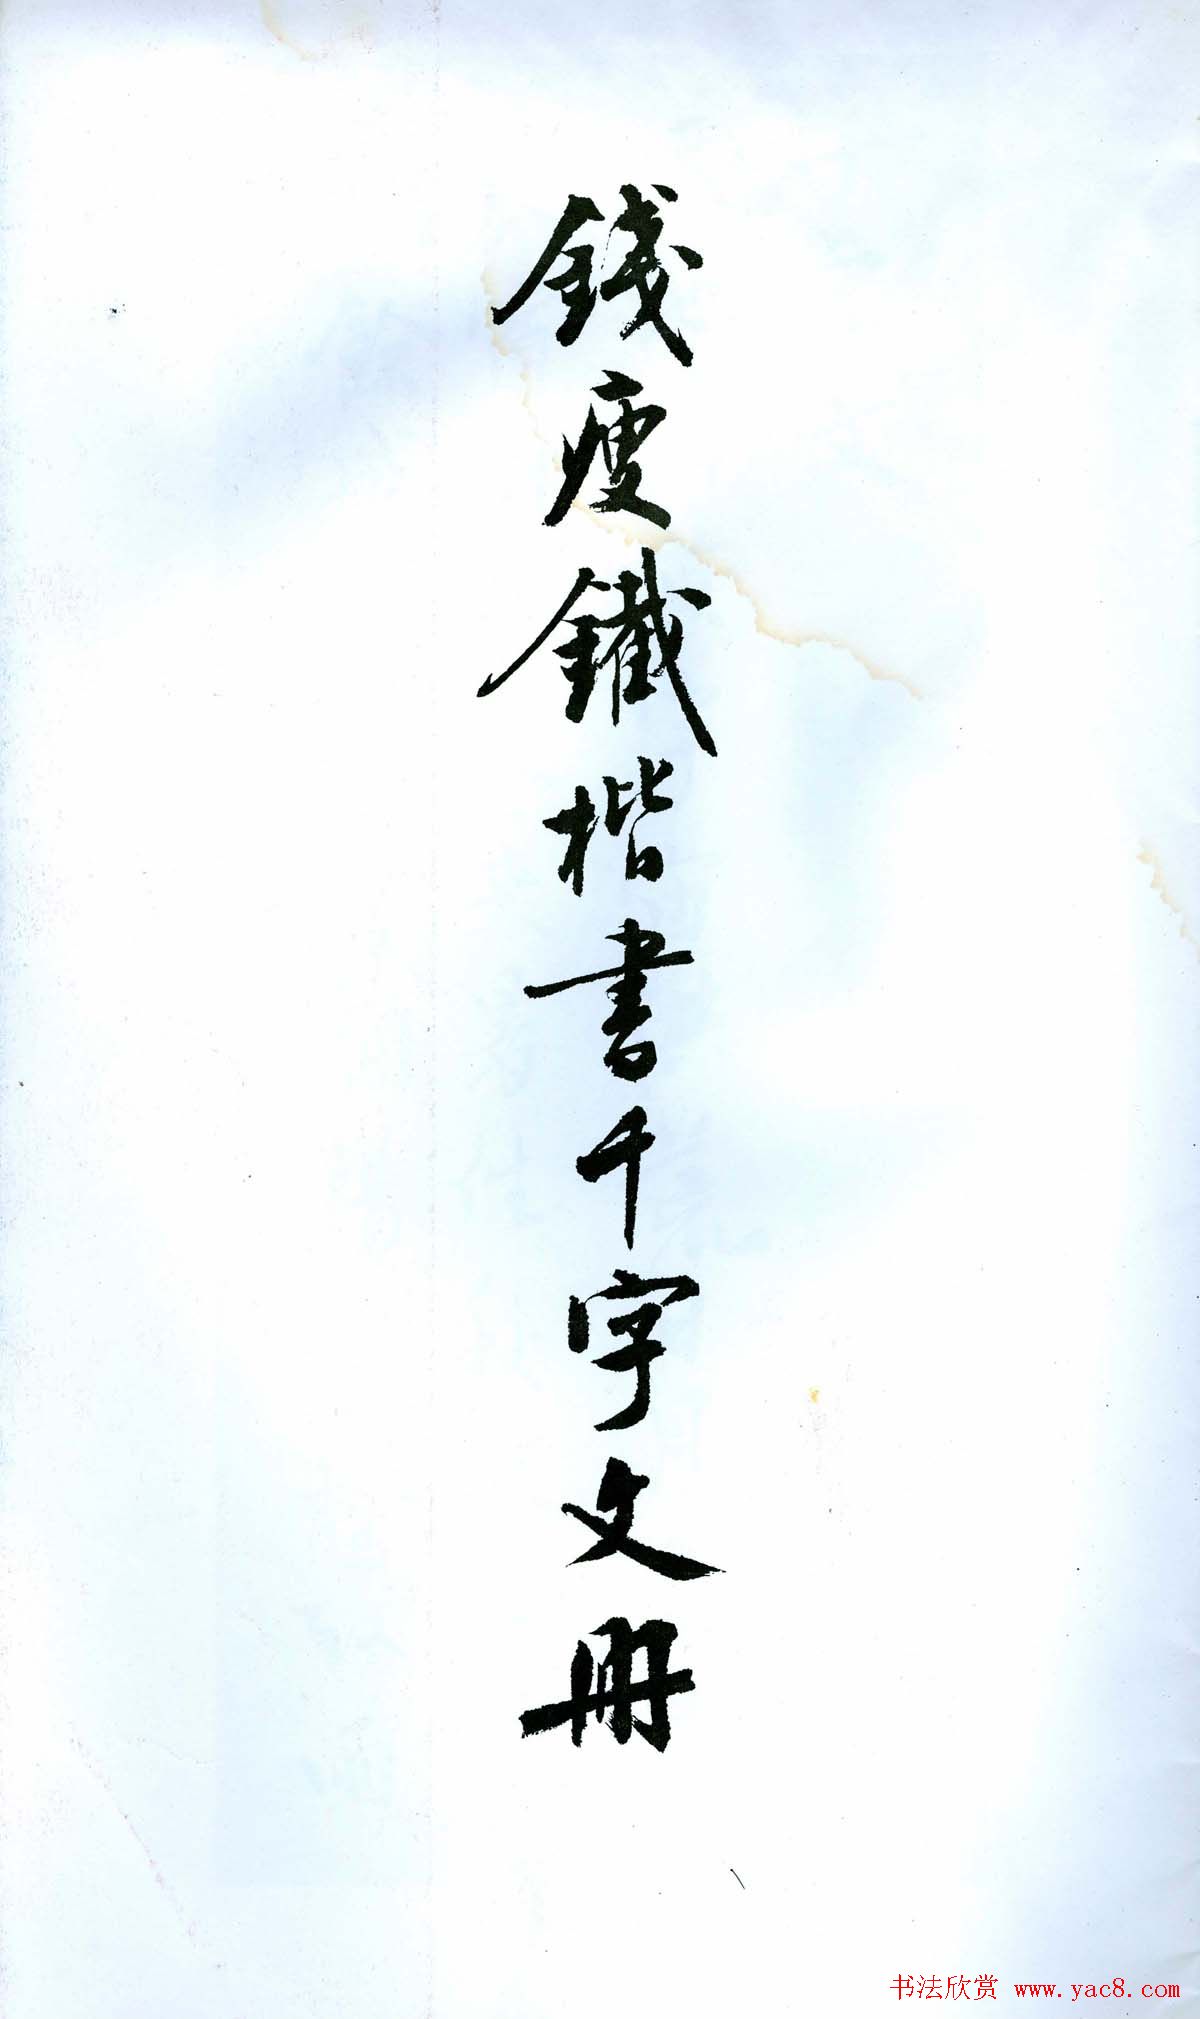 錢瘦鐵楷書千字文冊
书法欣赏 www.yac8.com